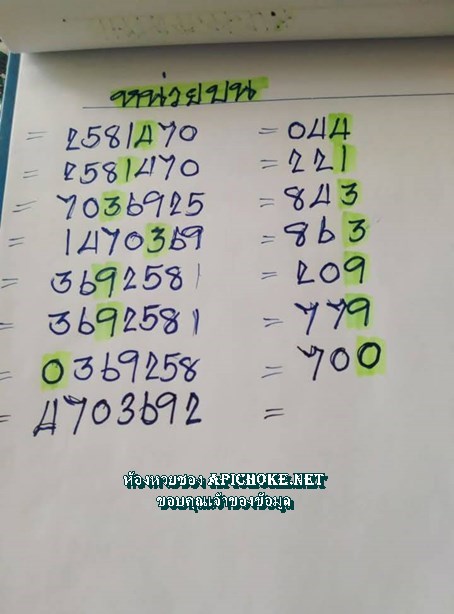 หน่วยบน
= 2581470 = 044
= 2581470 = 221
= 7036925 = 843
= 1470369 = 863
= 3692581 = 209
= 3692581 = 779
= 0369258 = 700
= 4703692 =
ห้องหวยซอง APICHOKE.NET
ขอบคุณเจ้าของข้อมูล